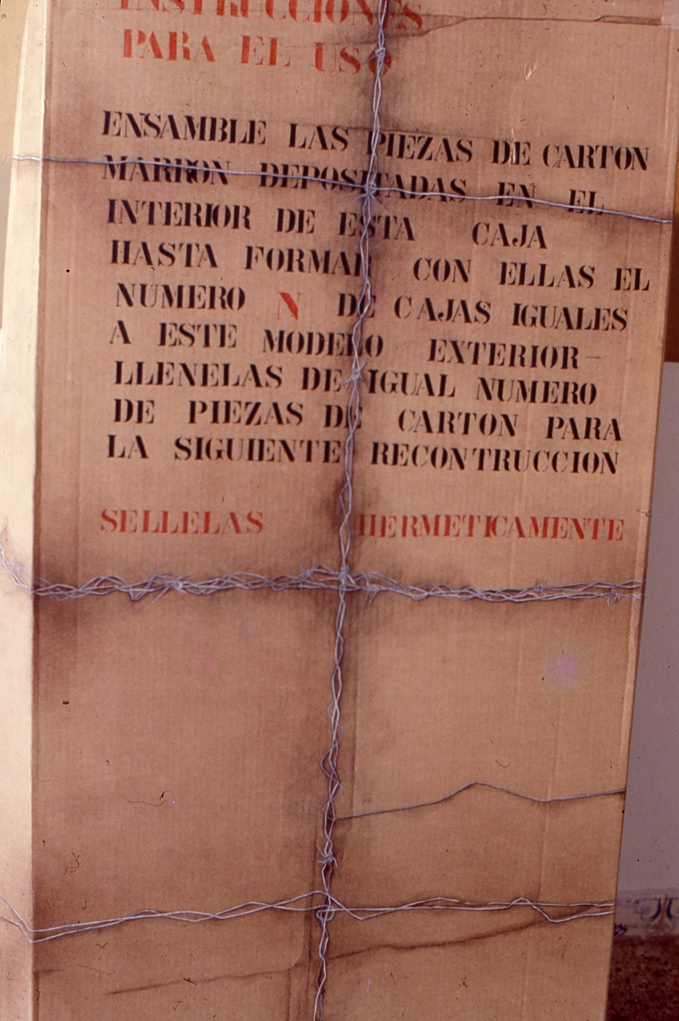 INSTRUCCIONES
PARA EL USO
ENSAMBLE LAS PIEZAS DE CARTON
MARRON DEPOSITADAS EN EL
INTERIOR DE ESTA CAJA
HASTA FORMAR CON ELLAS EL
NUMERO N DE CAJAS IGUALES
A ESTE MODELO EXTERIOR-
LLENELAS DE IGUAL NUMERO
DE PIEZAS DE CARTON PARA
LA SIGUIENTE RECONTRUCCION
SELLELAS HERMETICAMENTE